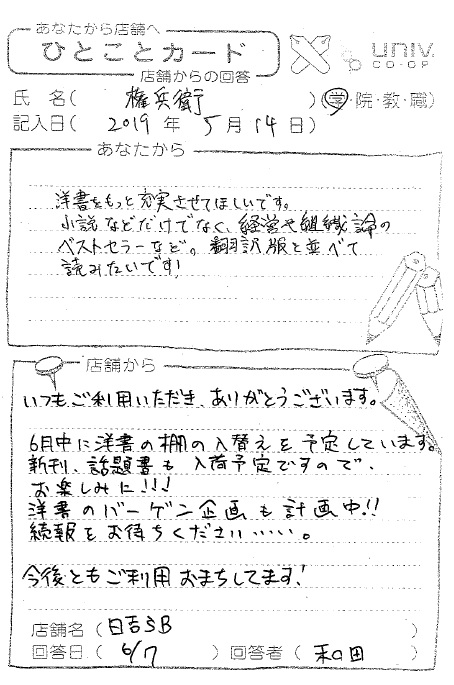 あなたから店舗へ
ひとことカード
店舗からの回答
univ.
CO-OP
氏 名 ( 権兵衛 ) (学・院・教・職)
記入日 ( 2019 年 5 月 14 日 )
あなたから
洋書をもっと充実させてほしいです。
小説などだけでなく、経営や組織論の
ベストセラーなど。翻訳版と並べて
読みたいです!
店舗から
いつもご利用いただき、ありがとうございます。
6月中に洋書の棚の入替えを予定しています。
新刊、話題書も入荷予定ですので、
お楽しみに!!!
洋書のバーゲン企画も計画中!!
続報をお待ちください……。
今後ともご利用おまちしてます!
店舗名 ( 日吉SB )
回答日 ( 6/7 ) 回答者 ( 和田 )